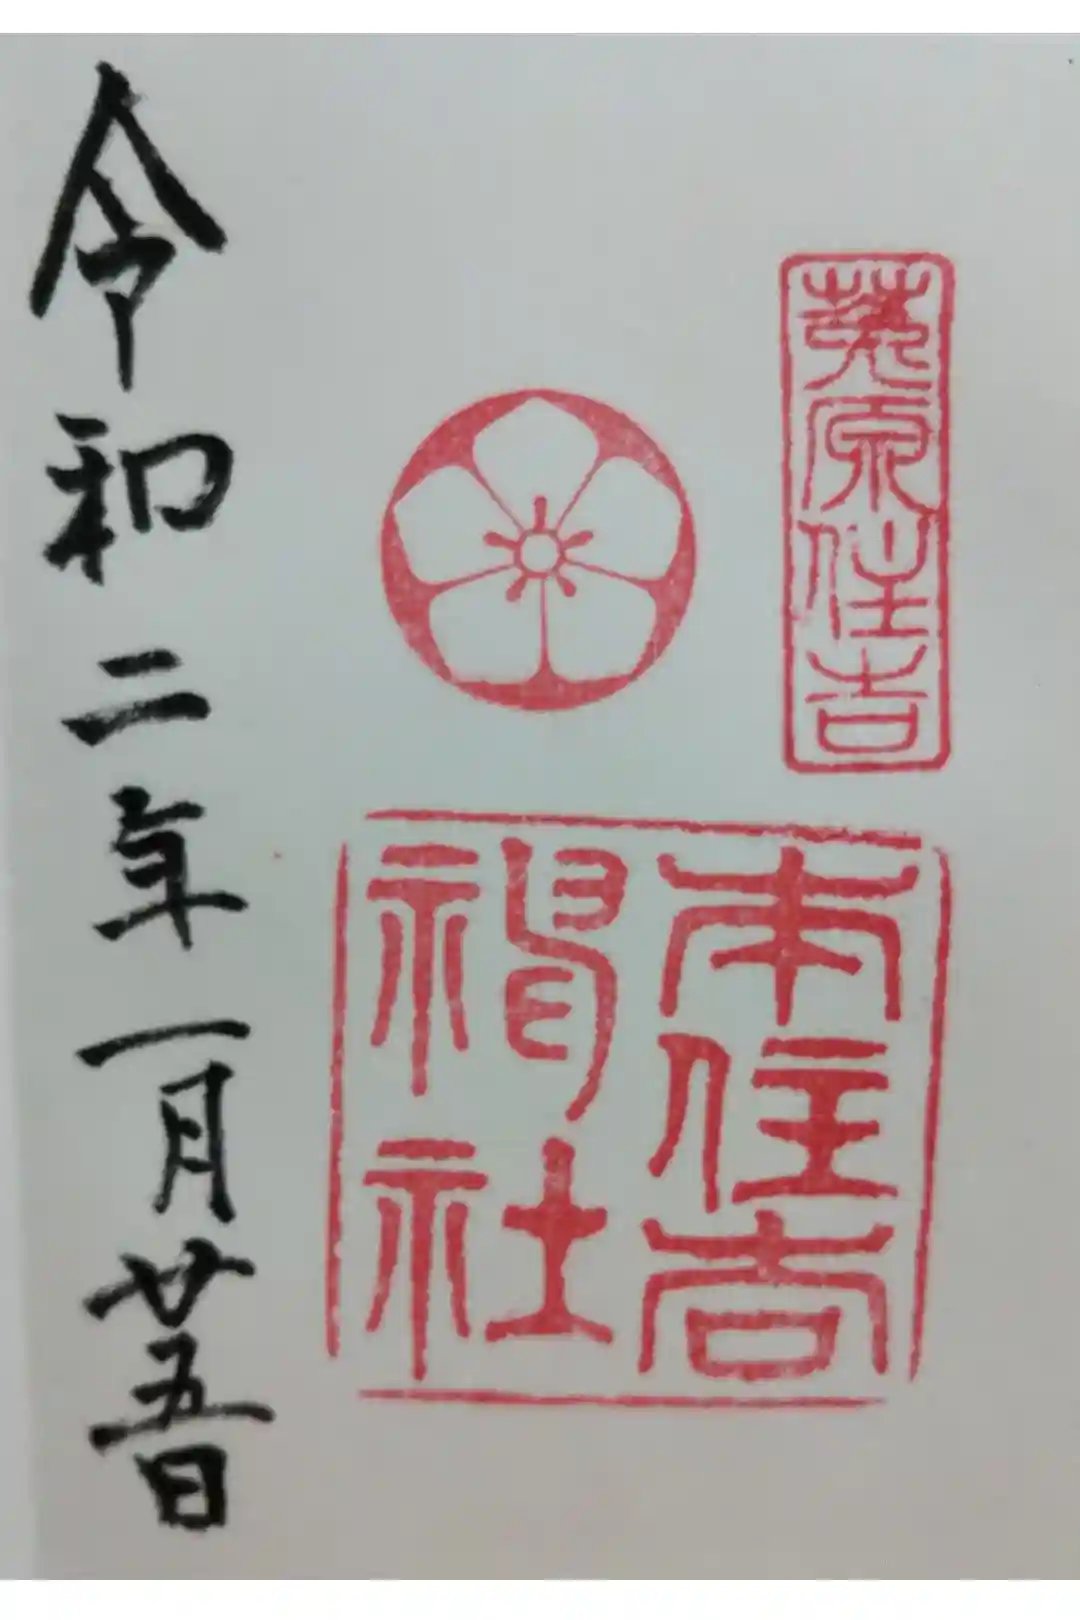 菟原住吉
本住吉
神社
令和二年一月廿五日